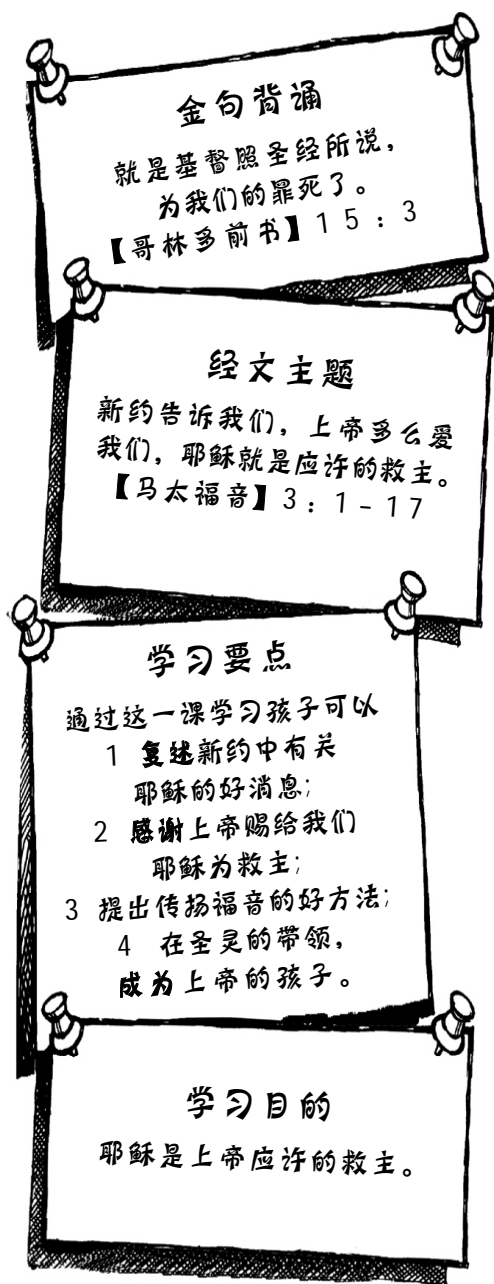 金句背诵
就是基督照圣经所说，
为我们的罪死了。
【哥林多前书】15：3
经文主题
新约告诉我们，上帝多么爱
我们，耶稣就是应许的救主。
【马太福音】3：1-17
学习要点
通过这一课学习孩子可以
1 复述新约中有关
耶稣的好消息；
2 感谢上帝赐给我们
耶稣为救主；
3 提出传扬福音的好方法；
4 在圣灵的带领，
成为上帝的孩子。
学习目的
耶稣是上帝应许的救主。